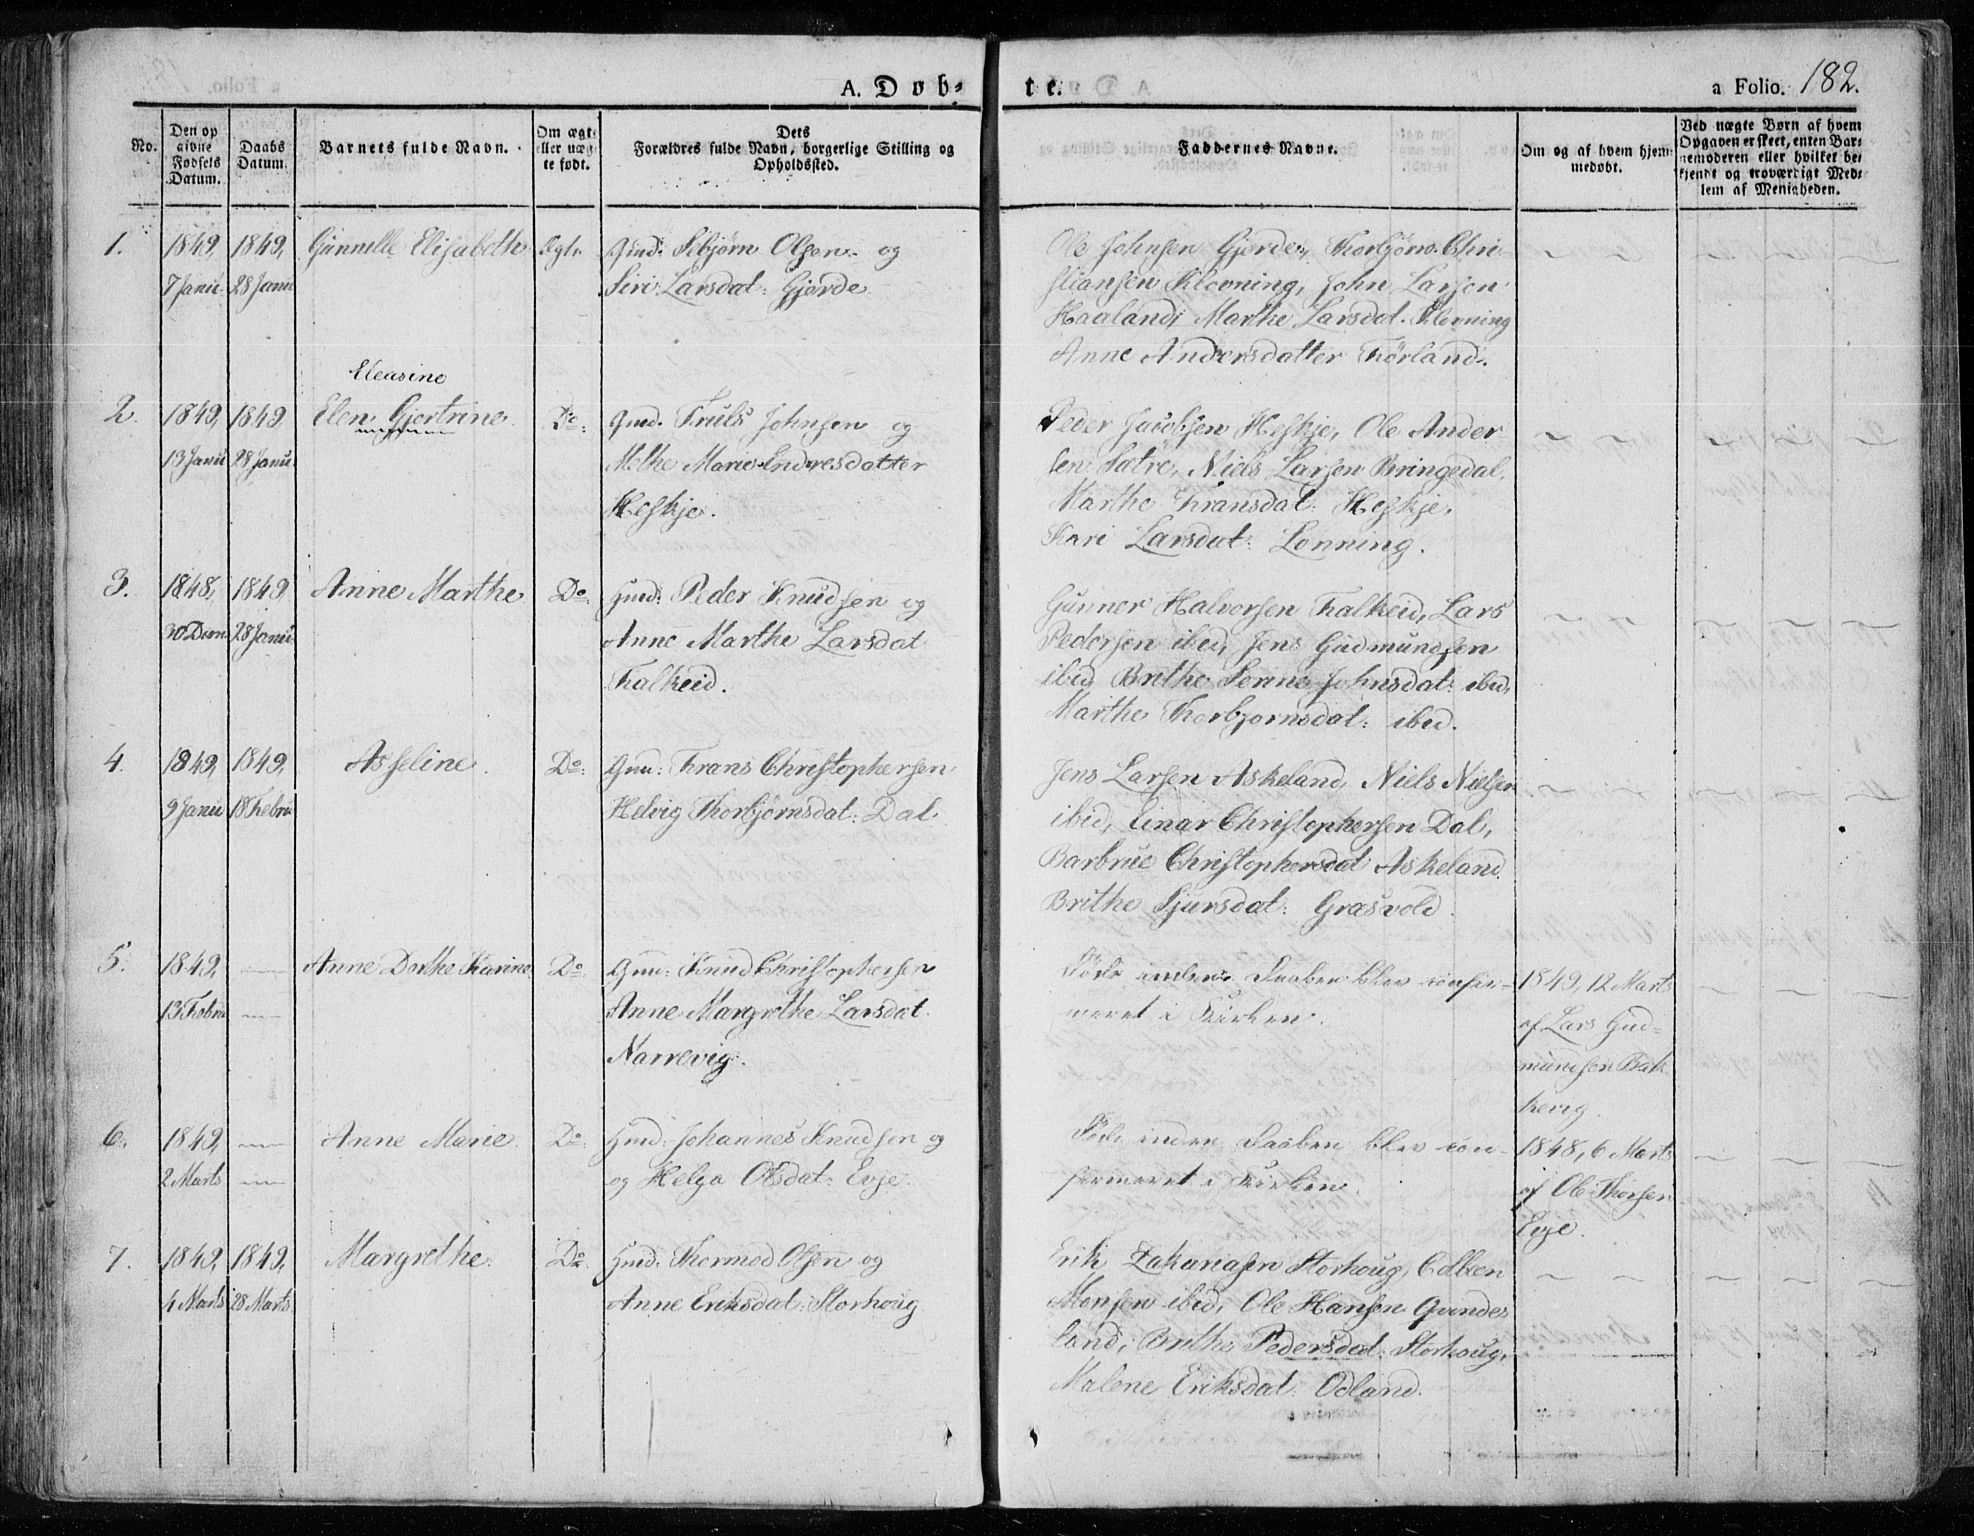 A. Døb- te. a Folio. 182.
No.
Den opgivne Fødsels Datum.
Daabs Datum.
Barnets fulde Navn.
Om ægte eller uægte født.
Dets Forældres fulde Navn, borgerlige Stilling og Opholdssted.
Faddernes Navne.
Om og af hvem hjemmedøbt.
Ved uægte Børn af hvem Opgaven er skeet, enten Barnemoderen eller hvilket bekjendt og troværdigt Medlem af Menigheden.
1. 1849, 1849, Gunnelle Elisabeth Ægte Gmd: Asbjørn Olsen og
7 Janu 28 Janu Siri Larsdat: Gjerde
Ole Johnsen Gjerde, Thorbjørn Chri-
stiansen Klovning, John Larsen
Haaland, Marthe Larsdat. Klovning
Anne Andersdatter Førland.
Eleasine
2. 1849, 1849 Elen Gjertrine Do: Gmd. Truls Johnsen og
13 Janu 28 Janu Methe Marie Endresdatter
Heskje.
Peder Jacobsen Heskje, Ole Ander-
sen Sætre, Niels Larsen Bringedal,
Marthe Fransdat: Heskje.
Kari Larsdat: Lonning.
3. 1848, 1849 Anne Marthe Do: Hmd: Peder Knudsen og
30 Decm 28 Janu Anne Marthe Larsdat
Falkeid.
Gunner Halvorsen Falkeid, Lars
Pedersen ibid, Jens Gudmundsen
ibid, Brithe Serine Johnsdat: ibid,
Marthe Thorbjornsdat: ibid.
4. 1849, 1849, Asseline Do: Gmd: Frans Christophersen
9 Janu 18 Febru Helvig Thorbjørnsdat: Dal
Jens Larsen Askeland, Niels Nielsen
ibid, Einar Christophersen Dal,
Barbrue Christophersdat Askeland
Brithe Sjursdat: Græsvold.
5. 1849, — Anne Dorthe Karine Do Gmd: Knud Christophersen
13 Febru — Anne Margrethe Larsdat.
Narrevig.
Døde inden Daaben blev confir-
meret i Kirken.
1849, 12 Marts
af Lars Gud-
mundsen Bak
kevig.
6. 1849, — Anne Marie Do: Hmd: Johannes Knudsen og
2 Marts — og Helga Olsdat: Evje.
Døde inden Daaben blev con-
firmeret i Kirken.
1848, 6 Marts
af Ole Thorsen
Evje.
7. 1849, 1849, Margrethe Do. Hmd: Thormod Olsen og
4 Marts 28 Marts Anne Eriksdat: Storhoug
Erik Zakariasen Storhoug, Colbeen
Monsen ibid, Ole Hansen Qvindes
land, Brithe Pedersdat: Storhoug,
Malene Eriksdat: Odland.